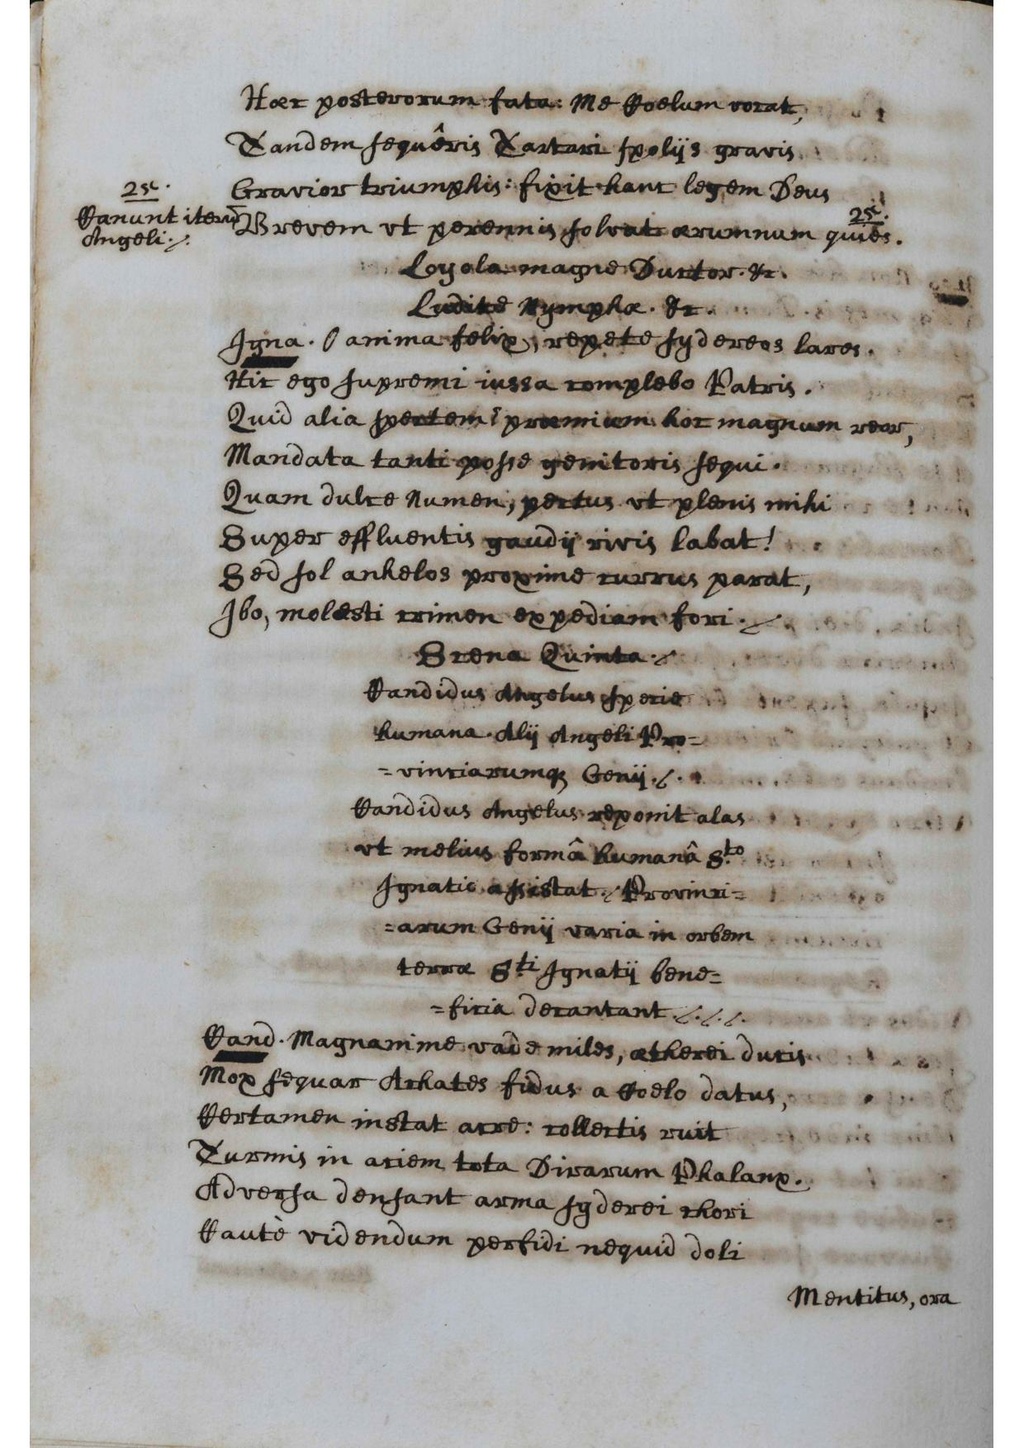 Haec posterorum fata: Me Coelum vocat,
Tandem sequêris Tartari spolijs gravis
Gravior triumphis: fixit hanc legem Deus
25a.
Canunt iterũ
Angeli.
Brevem vt perennis solvat aerumnam quies.
25a.
Loyola magne Ductor. &c.
Ludite Nymphae. &c.
Igna. O anima felix, repete sydereos lares.
Hic ego supremi iussa complebo Patris.
Quid alia spectem? praemium hoc magnum reor,
Mandata tanti posse genitoris sequi.
Quam dulce Numen, pectus vt plenis mihi
Super effluentis gaudij rivis labat!
Sed sol anhelos proxime currus parat,
Ibo, molesti crimen expediam fori.
Scena Quinta.
Candidus Angelus specie
humana. Alij Angeli Pro=
=vinciarumq; Genij.
Candidus Angelus reponit alas
vt melius formâ humanâ S.to
Ignatio assistat. Provinci=
=arum Genij varia in orbem
terrae S.ti Ignatij bene=
=ficia decantant.
Cand. Magnanime vade miles, aetherei ducis
Mox sequar Achates fidus a Coelo datus,
Certamen instat acre: collectis ruit
Turmis in aciem tota Dirarum Phalanx.
Adversa densant arma syderei chori
Cautè videndum perfidi nequid doli
Mentitus, ora